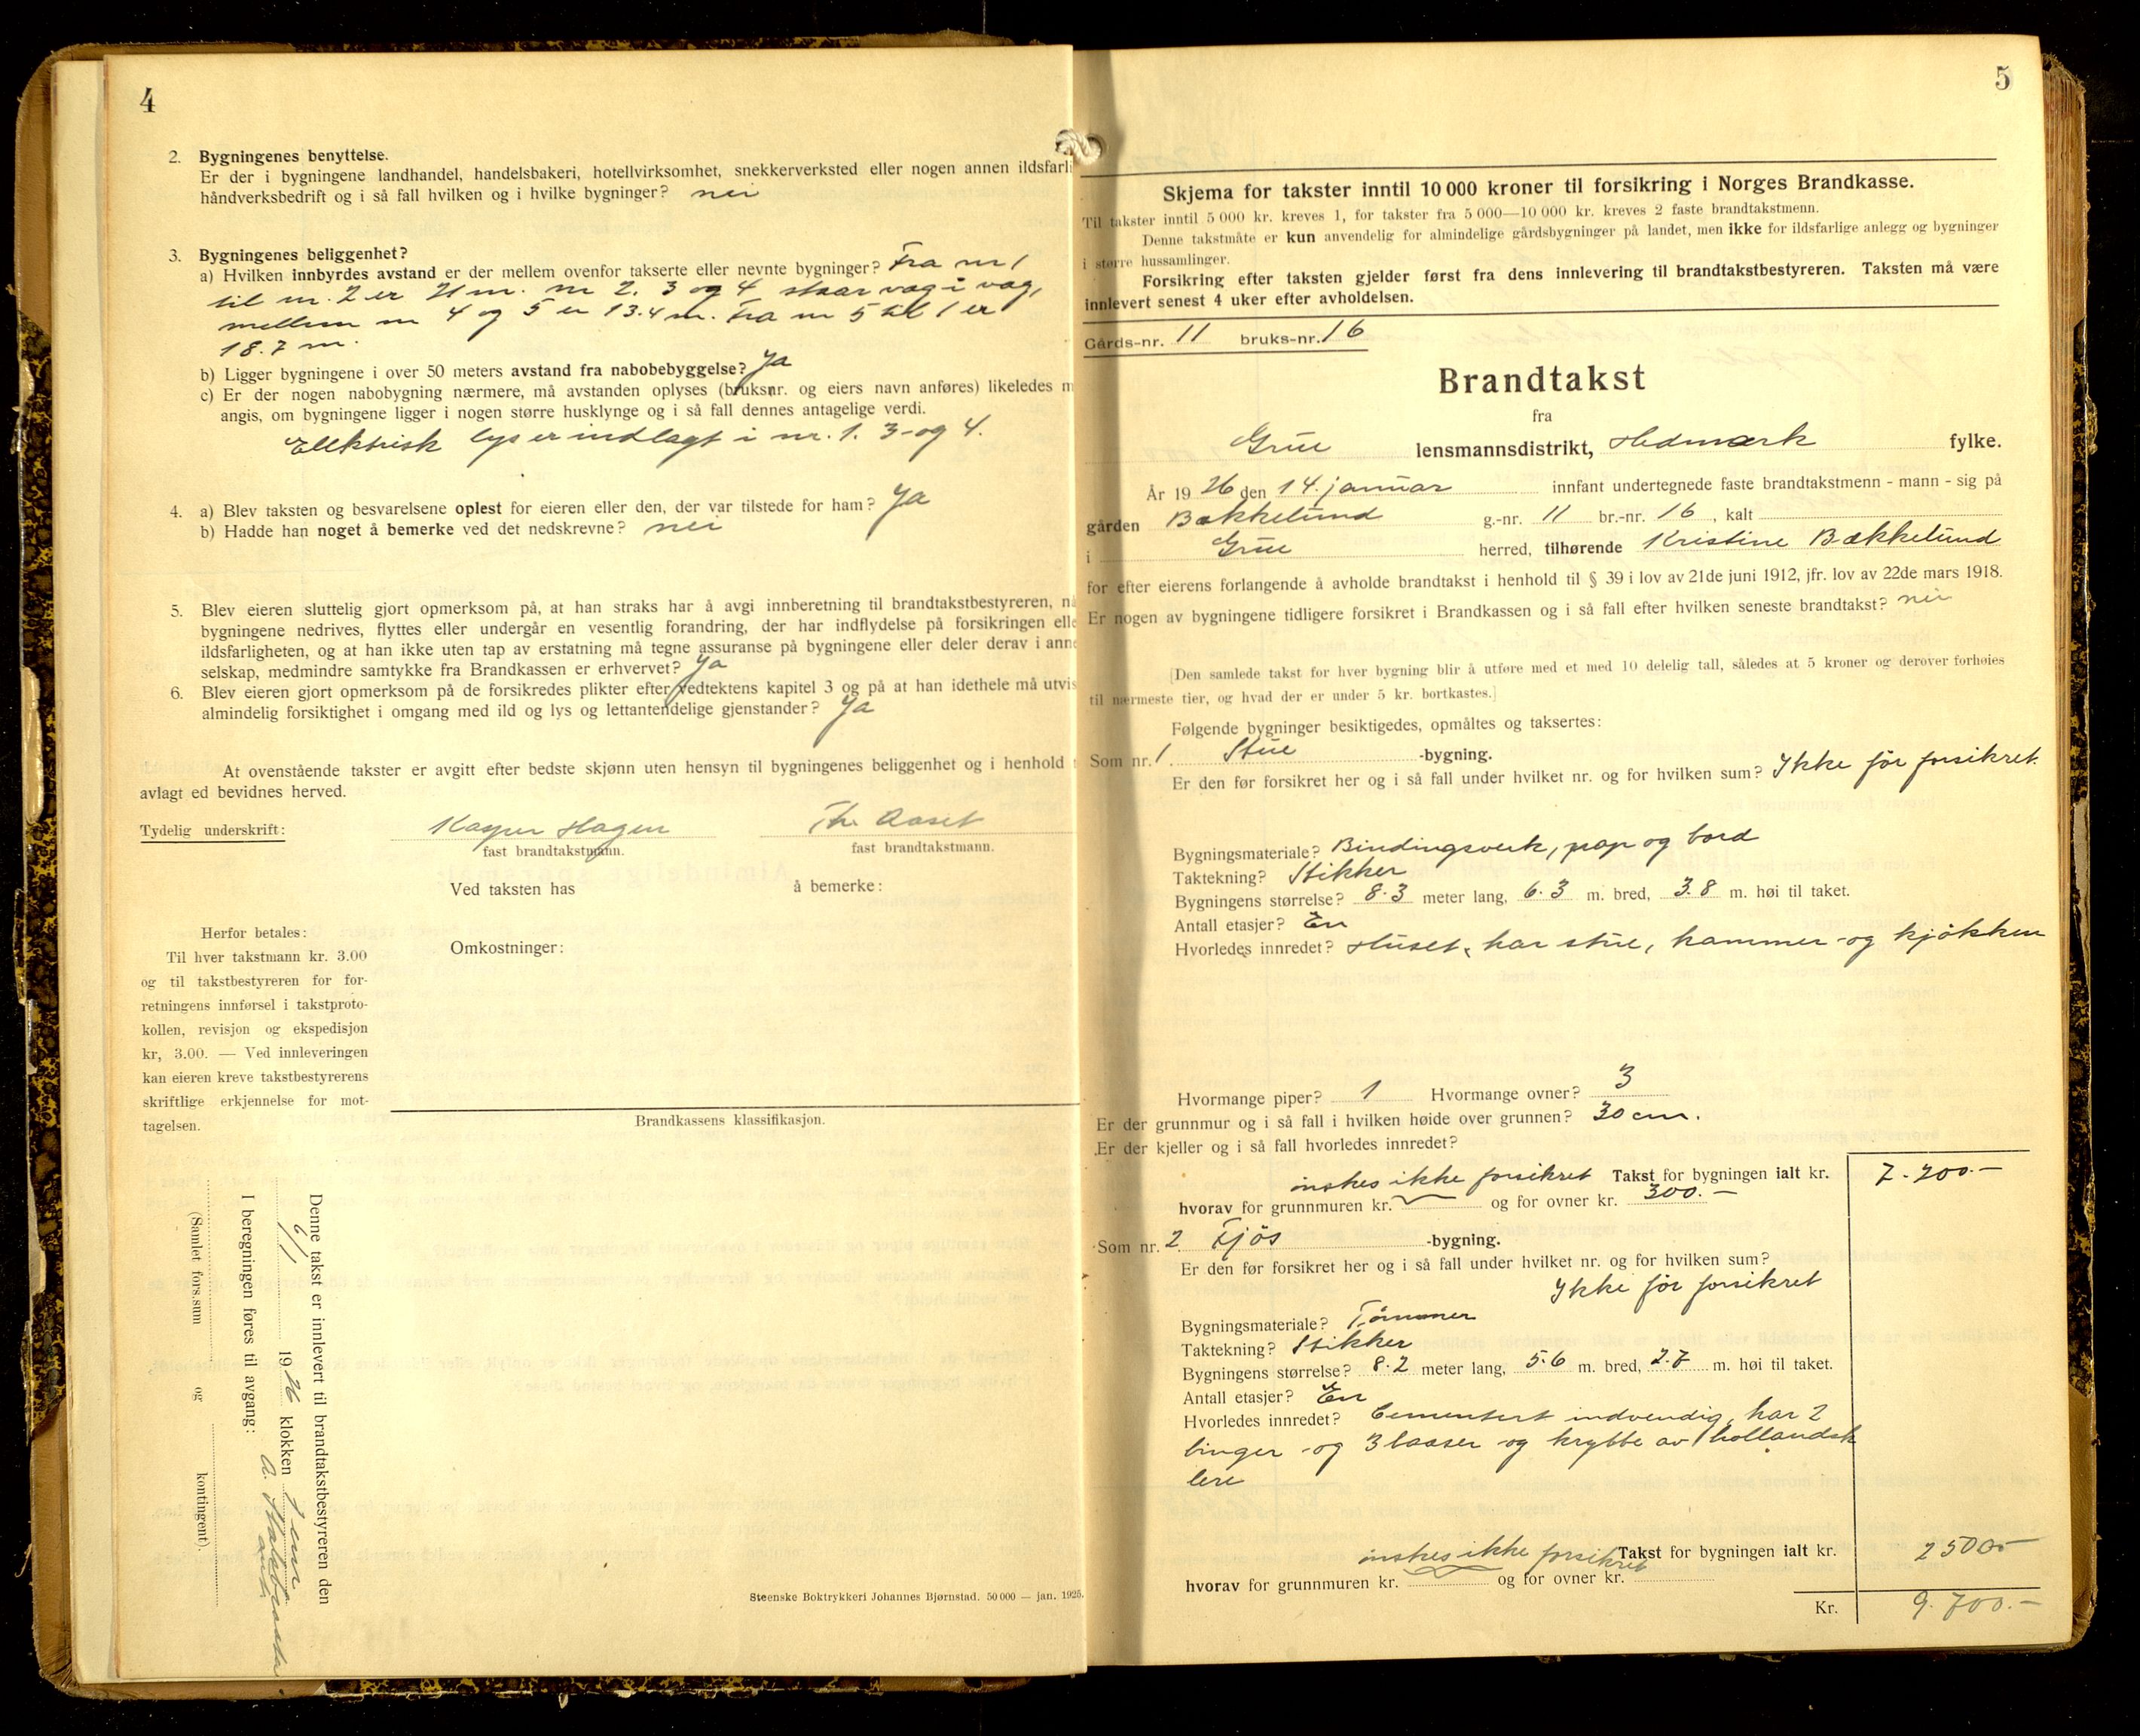 4
2. Bygningenes benyttelse.
Er der i bygningene landhandel, handelsbakeri, hotellvirksomhet, snekkerverksted eller nogen annen ildsfarli
håndverksbedrift og i så fall hvilken og i hvilke bygninger? nei
3. Bygningenes beliggenhet?
a) Hvilken innbyrdes avstand er der mellem ovenfor takserte eller nevnte bygninger? Fra nr 1
til nr. 2 er 21 m. nr 2, 3 og 4 staar væg i væg,
mellem nr 4 og 5 er 13.4 m. Fra nr 5 til 1 er
18.7 m.
b) Ligger bygningene i over 50 meters avstand fra nabobebyggelse? Ja
c) Er der nogen nabobygning nærmere, må avstanden oplyses (bruksnr. og eiers navn anføres) likeledes m
angis, om bygningene ligger i nogen større husklynge og i så fall dennes antagelige verdi.
Ellektrisk lys er indlagt i nr. 1. 3 og 4.
4. a) Blev taksten og besvarelsene oplest for eieren eller den, der var tilstede for ham? Ja
b) Hadde han noget å bemerke ved det nedskrevne? nei
5. Blev eieren sluttelig gjort opmerksom på, at han straks har å avgi innberetning til brandtakstbestyreren, nå
bygningene nedrives, flyttes eller undergår en vesentlig forandring, der har indflydelse på forsikringen elle
ildsfarligheten, og at han ikke uten tap av erstatning må tegne assuranse på bygningene eller deler derav i anne
selskap, medmindre samtykke fra Brandkassen er erhvervet? Ja
6. Blev eieren gjort opmerksom på de forsikredes plikter efter vedtektens kapitel 3 og på at han idethele må utvis
almindelig forsiktighet i omgang med ild og lys og lettantendelige gjenstander? Ja
At ovenstående takster er avgitt efter bedste skjønn uten hensyn til bygningenes beliggenhet og i henhold
avlagt ed bevidnes herved.
Tydelig underskrift: Kasper Hagen Th. Aaset
fast brandtakstmann. fast brandtakstmann.
Ved taksten has å bemerke:
Herfor betales:
Omkostninger:
Til hver takstmann kr. 3.00
og til takstbestyreren for for-
retningens innførsel i takstproto-
kollen, revisjon og ekspedisjon
kr, 3.00. — Ved innleveringen
kan eieren kreve takstbestyrerens
skriftlige erkjennelse for mot-
tagelsen.
Brandkassens klassifikasjon.
Denne takst er innlevert til brandtakstbestyreren den
6/1 1926 klokken 1 em
A.
I beregningen føres til avgang:
(Samlet fors.sum og kontingent).
Steenske Boktrykkeri Johannes Bjørnstad. 50 000 — jan. 1925.
5
Skjema for takster inntil 10 000 kroner til forsikring i Norges Brandkasse.
Til takster inntil 5 000 kr. kreves 1, for takster fra 5 000—10 000 kr. kreves 2 faste brandtakstmenn.
Denne takstmåte er kun anvendelig for almindelige gårdsbygninger på landet, men ikke for ildsfarlige anlegg og bygninger
i større hussamlinger.
Forsikring efter taksten gjelder først fra dens innlevering til brandtakstbestyreren. Taksten må være
innlevert senest 4 uker efter avholdelsen.
Gårds-nr. 11 bruks-nr. 16
Brandtakst
fra
Grue lensmannsdistrikt, Hedmark fylke.
År 1926 den 14. januar innfant undertegnede faste brandtakstmenn - mann - sig på
gården Bækkelund g.-nr. 11 br.-nr. 16, kalt
i Grue herred, tilhørende Kristine Bækkelund
for efter eierens forlangende å avholde brandtakst i henhold til § 39 i lov av 21de juni 1912, jfr. lov av 22de mars 1918.
Er nogen av bygningene tidligere forsikret i Brandkassen og i så fall efter hvilken seneste brandtakst? nei
[Den samlede takst for hver bygning blir å utføre med et med 10 delelig tall, således at 5 kroner og derover forhøies
til nærmeste tier, og hvad der er under 5 kr. bortkastes.]
Følgende bygninger besiktigedes, opmåltes og taksertes:
Som nr. 1. Stue -bygning.
Er den før forsikret her og i så fall under hvilket nr. og for hvilken sum? Ikke før forsikret.
Bygningsmateriale? Bindingsverk, pap og bord
Taktekning? Stikker
Bygningens størrelse? 8.3 meter lang, 6.3 m. bred, 3.8 m. høi til taket.
Antall etasjer? En
Hvorledes innredet? Huset, har stue, kammer og kjøkken
Hvormange piper? 1 Hvormange ovner? 3
Er der grunnmur og i så fall i hvilken høide over grunnen? 30 cm.
Er der kjeller og i så fall hvorledes innredet?
ønskes ikke forsikret Takst for bygningen ialt kr. 7.200.—
hvorav for grunnmuren kr. og for ovner kr. 300.—
Som nr. 2. Fjøs -bygning.
Er den før forsikret her og i så fall under hvilket nr. og for hvilken sum?
Ikke før forsikret
Bygningsmateriale? Tømmer
Taktekning? Stikker
Bygningens størrelse? 8.2 meter lang, 5.6 m. bred, 2.7 m. høi til taket.
Antall etasjer? En
Hvorledes innredet? Cementert indvendig, har 2
binger og 3 baaser og krybbe av hollandsk
lere
ønskes ikke forsikret Takst for bygningen ialt kr. 2500—
hvorav for grunnmuren kr. og for ovner kr.
Kr. 9.700.—